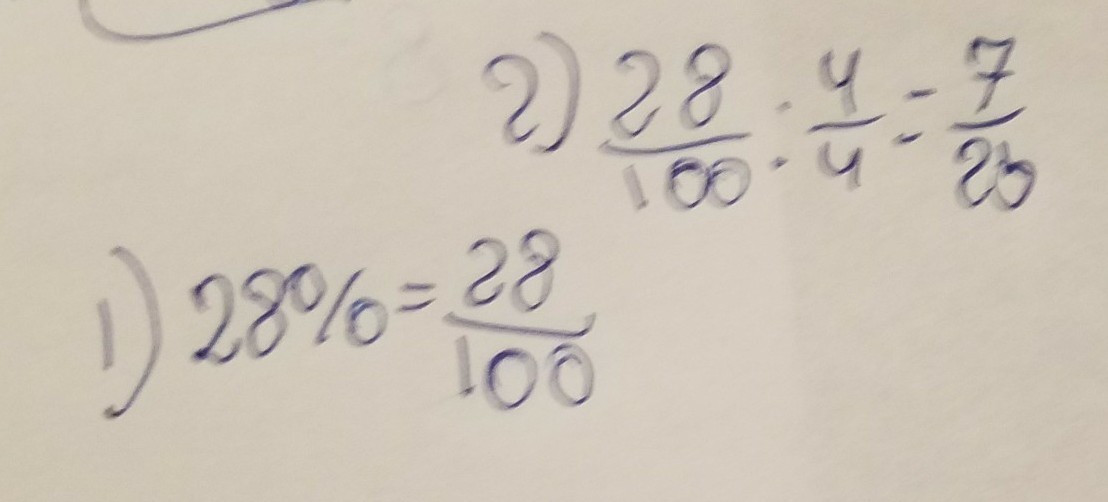 2) 28/100 : 4/4 = 7/25
1) 28% = 28/100